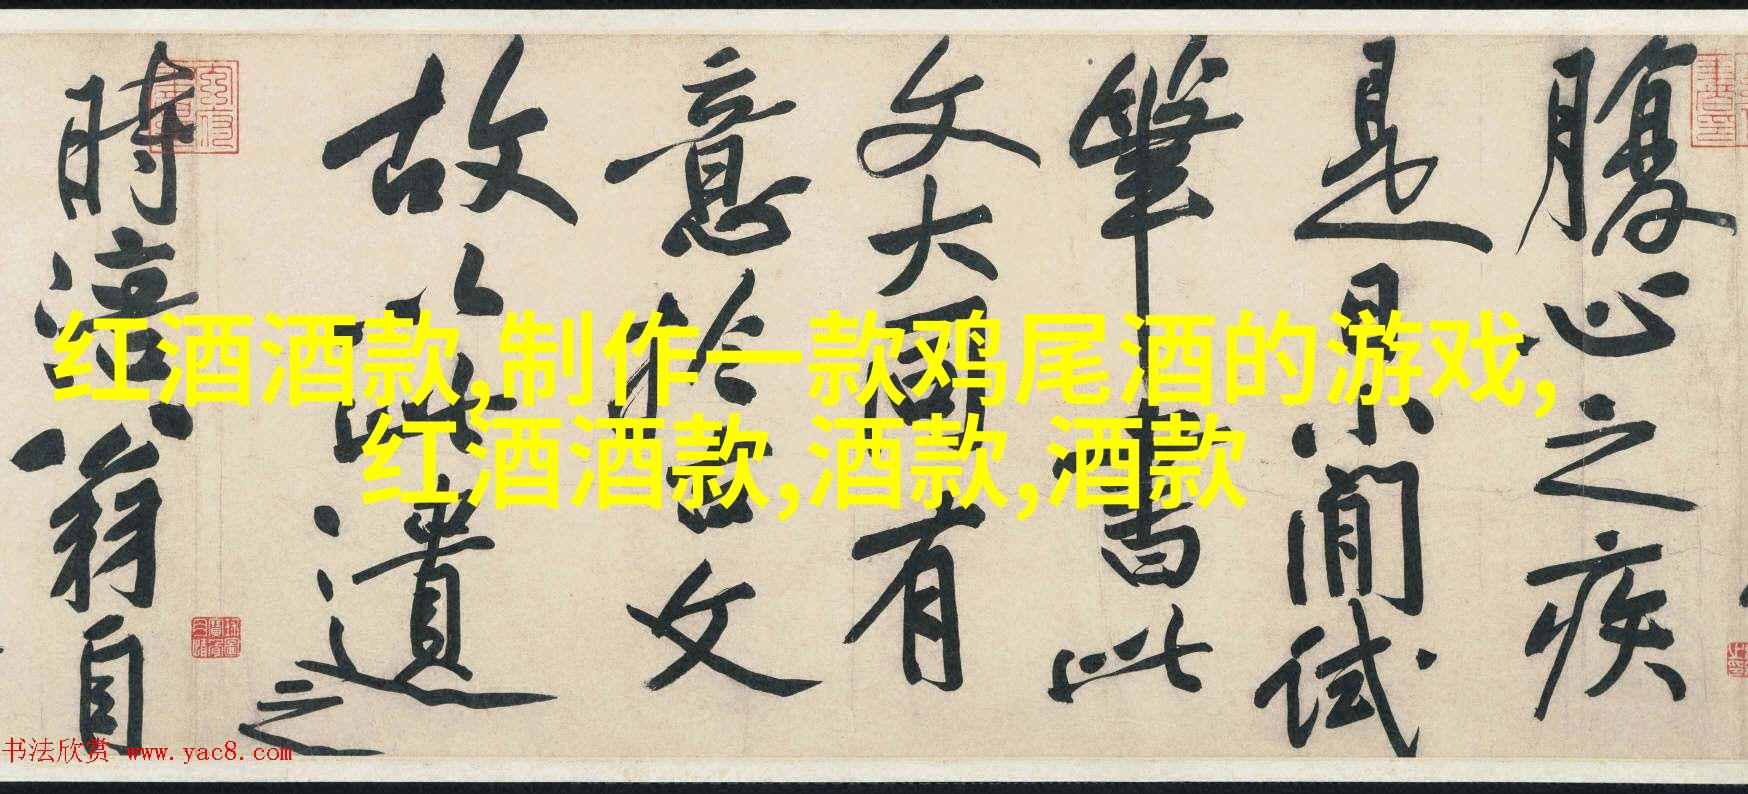 腹心之疾
是閒試
筆書此
文大同有
意於古文
故以遺之
時涪翁自
红酒酒款,制作一款鸡尾酒的游戏,
红酒酒款,酒款,酒款
书法欣赏 www.yac8.com